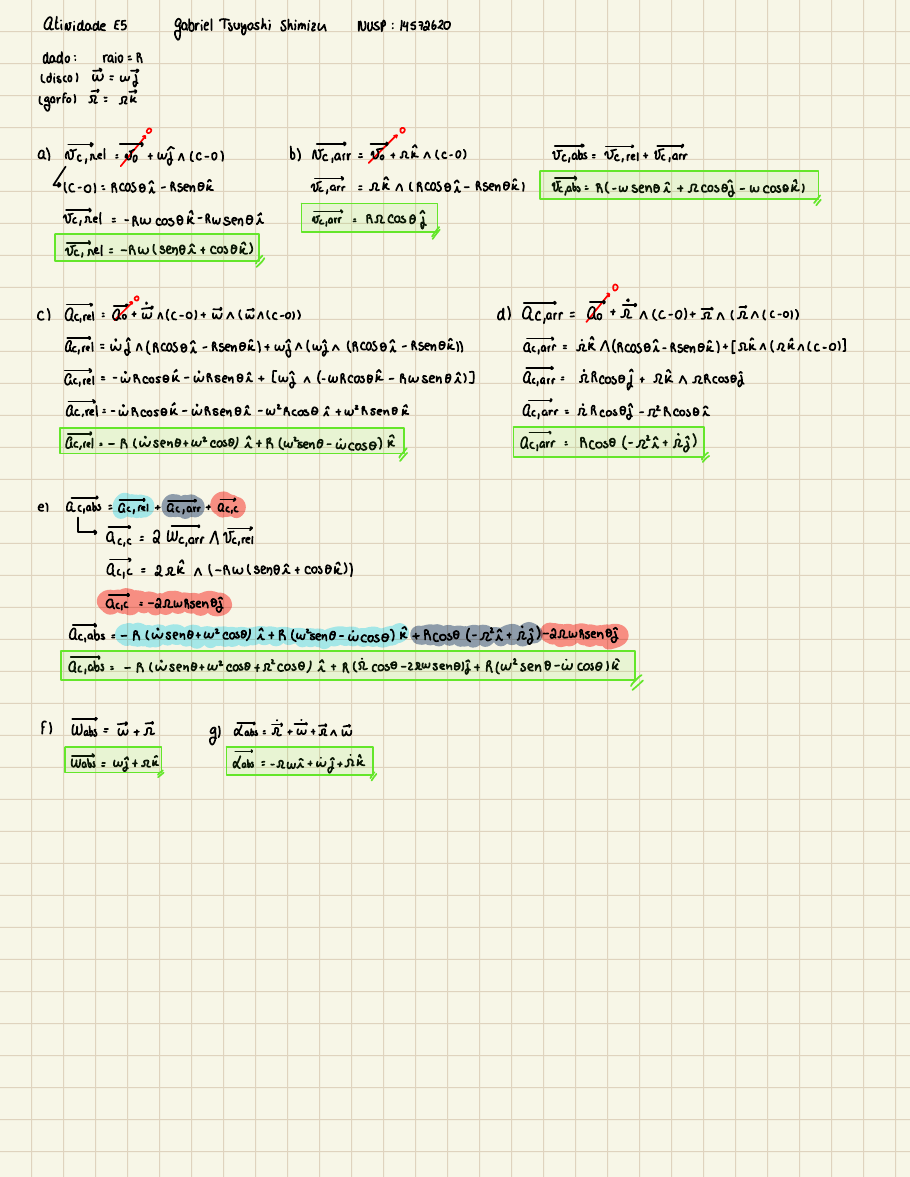 Atividade E5 Gabriel Tsuyoshi Shimizu NUSP: 14572620
dado: raio = R
(disco) ω⃗ = ωĵ
(garfo) Ω⃗ = Ωk̂
a) v⃗c,rel = v⃗o 0 + ωĵ ∧ (C-O)
(C-O) = Rcosθî - Rsenθk̂
v⃗c,rel = -Rωcosθk̂ - Rωsenθî
v⃗c,rel = -Rω(senθî + cosθk̂)
b) v⃗c,arr = v⃗o 0 + Ωk̂ ∧ (C-O)
v⃗c,arr = Ωk̂ ∧ (Rcosθî - Rsenθk̂)
v⃗c,arr = RΩcosθĵ
v⃗c,abs = v⃗c,rel + v⃗c,arr
v⃗c,abs = R(-ωsenθî + Ωcosθĵ - ωcosθk̂)
c) a⃗c,rel = a⃗o 0 + ω⃗̇ ∧ (C-O) + ω⃗ ∧ (ω⃗ ∧ (C-O))
a⃗c,rel = ω̇ĵ ∧ (Rcosθî - Rsenθk̂) + ωĵ ∧ (ωĵ ∧ (Rcosθî - Rsenθk̂))
a⃗c,rel = -ω̇Rcosθk̂ - ω̇Rsenθî + [ωĵ ∧ (-ωRcosθk̂ - Rωsenθî)]
a⃗c,rel = -ω̇Rcosθk̂ - ω̇Rsenθî - ω²Rcosθî + ω²Rsenθk̂
a⃗c,rel = -R(ω̇senθ + ω²cosθ)î + R(ω²senθ - ω̇cosθ)k̂
d) a⃗c,arr = a⃗o 0 + Ω⃗̇ ∧ (C-O) + Ω⃗ ∧ (Ω⃗ ∧ (C-O))
a⃗c,arr = Ω̇k̂ ∧ (Rcosθî - Rsenθk̂) + [Ωk̂ ∧ (Ωk̂ ∧ (C-O)]
a⃗c,arr = Ω̇Rcosθĵ + Ωk̂ ∧ ΩRcosθĵ
a⃗c,arr = Ω̇Rcosθĵ - Ω²Rcosθî
a⃗c,arr = Rcosθ(-Ω²î + Ω̇ĵ)
e) a⃗c,abs = a⃗c,rel + a⃗c,arr + a⃗c,c
a⃗c,c = 2 ω⃗c,arr ∧ v⃗c,rel
a⃗c,c = 2Ωk̂ ∧ (-Rω(senθî + cosθk̂))
a⃗c,c = -2ΩωRsenθĵ
a⃗c,abs = -R(ω̇senθ + ω²cosθ)î + R(ω²senθ - ω̇cosθ)k̂ + Rcosθ(-Ω²î + Ω̇ĵ) - 2ΩωRsenθĵ
a⃗c,abs = -R(ω̇senθ + ω²cosθ + Ω²cosθ)î + R(Ω̇cosθ - 2Ωωsenθ)ĵ + R(ω²senθ - ω̇cosθ)k̂
f) ω⃗abs = ω⃗ + Ω⃗
ω⃗abs = ωĵ + Ωk̂
g) α⃗abs = Ω⃗̇ + ω⃗̇ + Ω⃗ ∧ ω⃗
α⃗abs = -Ωωî + ω̇ĵ + Ω̇k̂